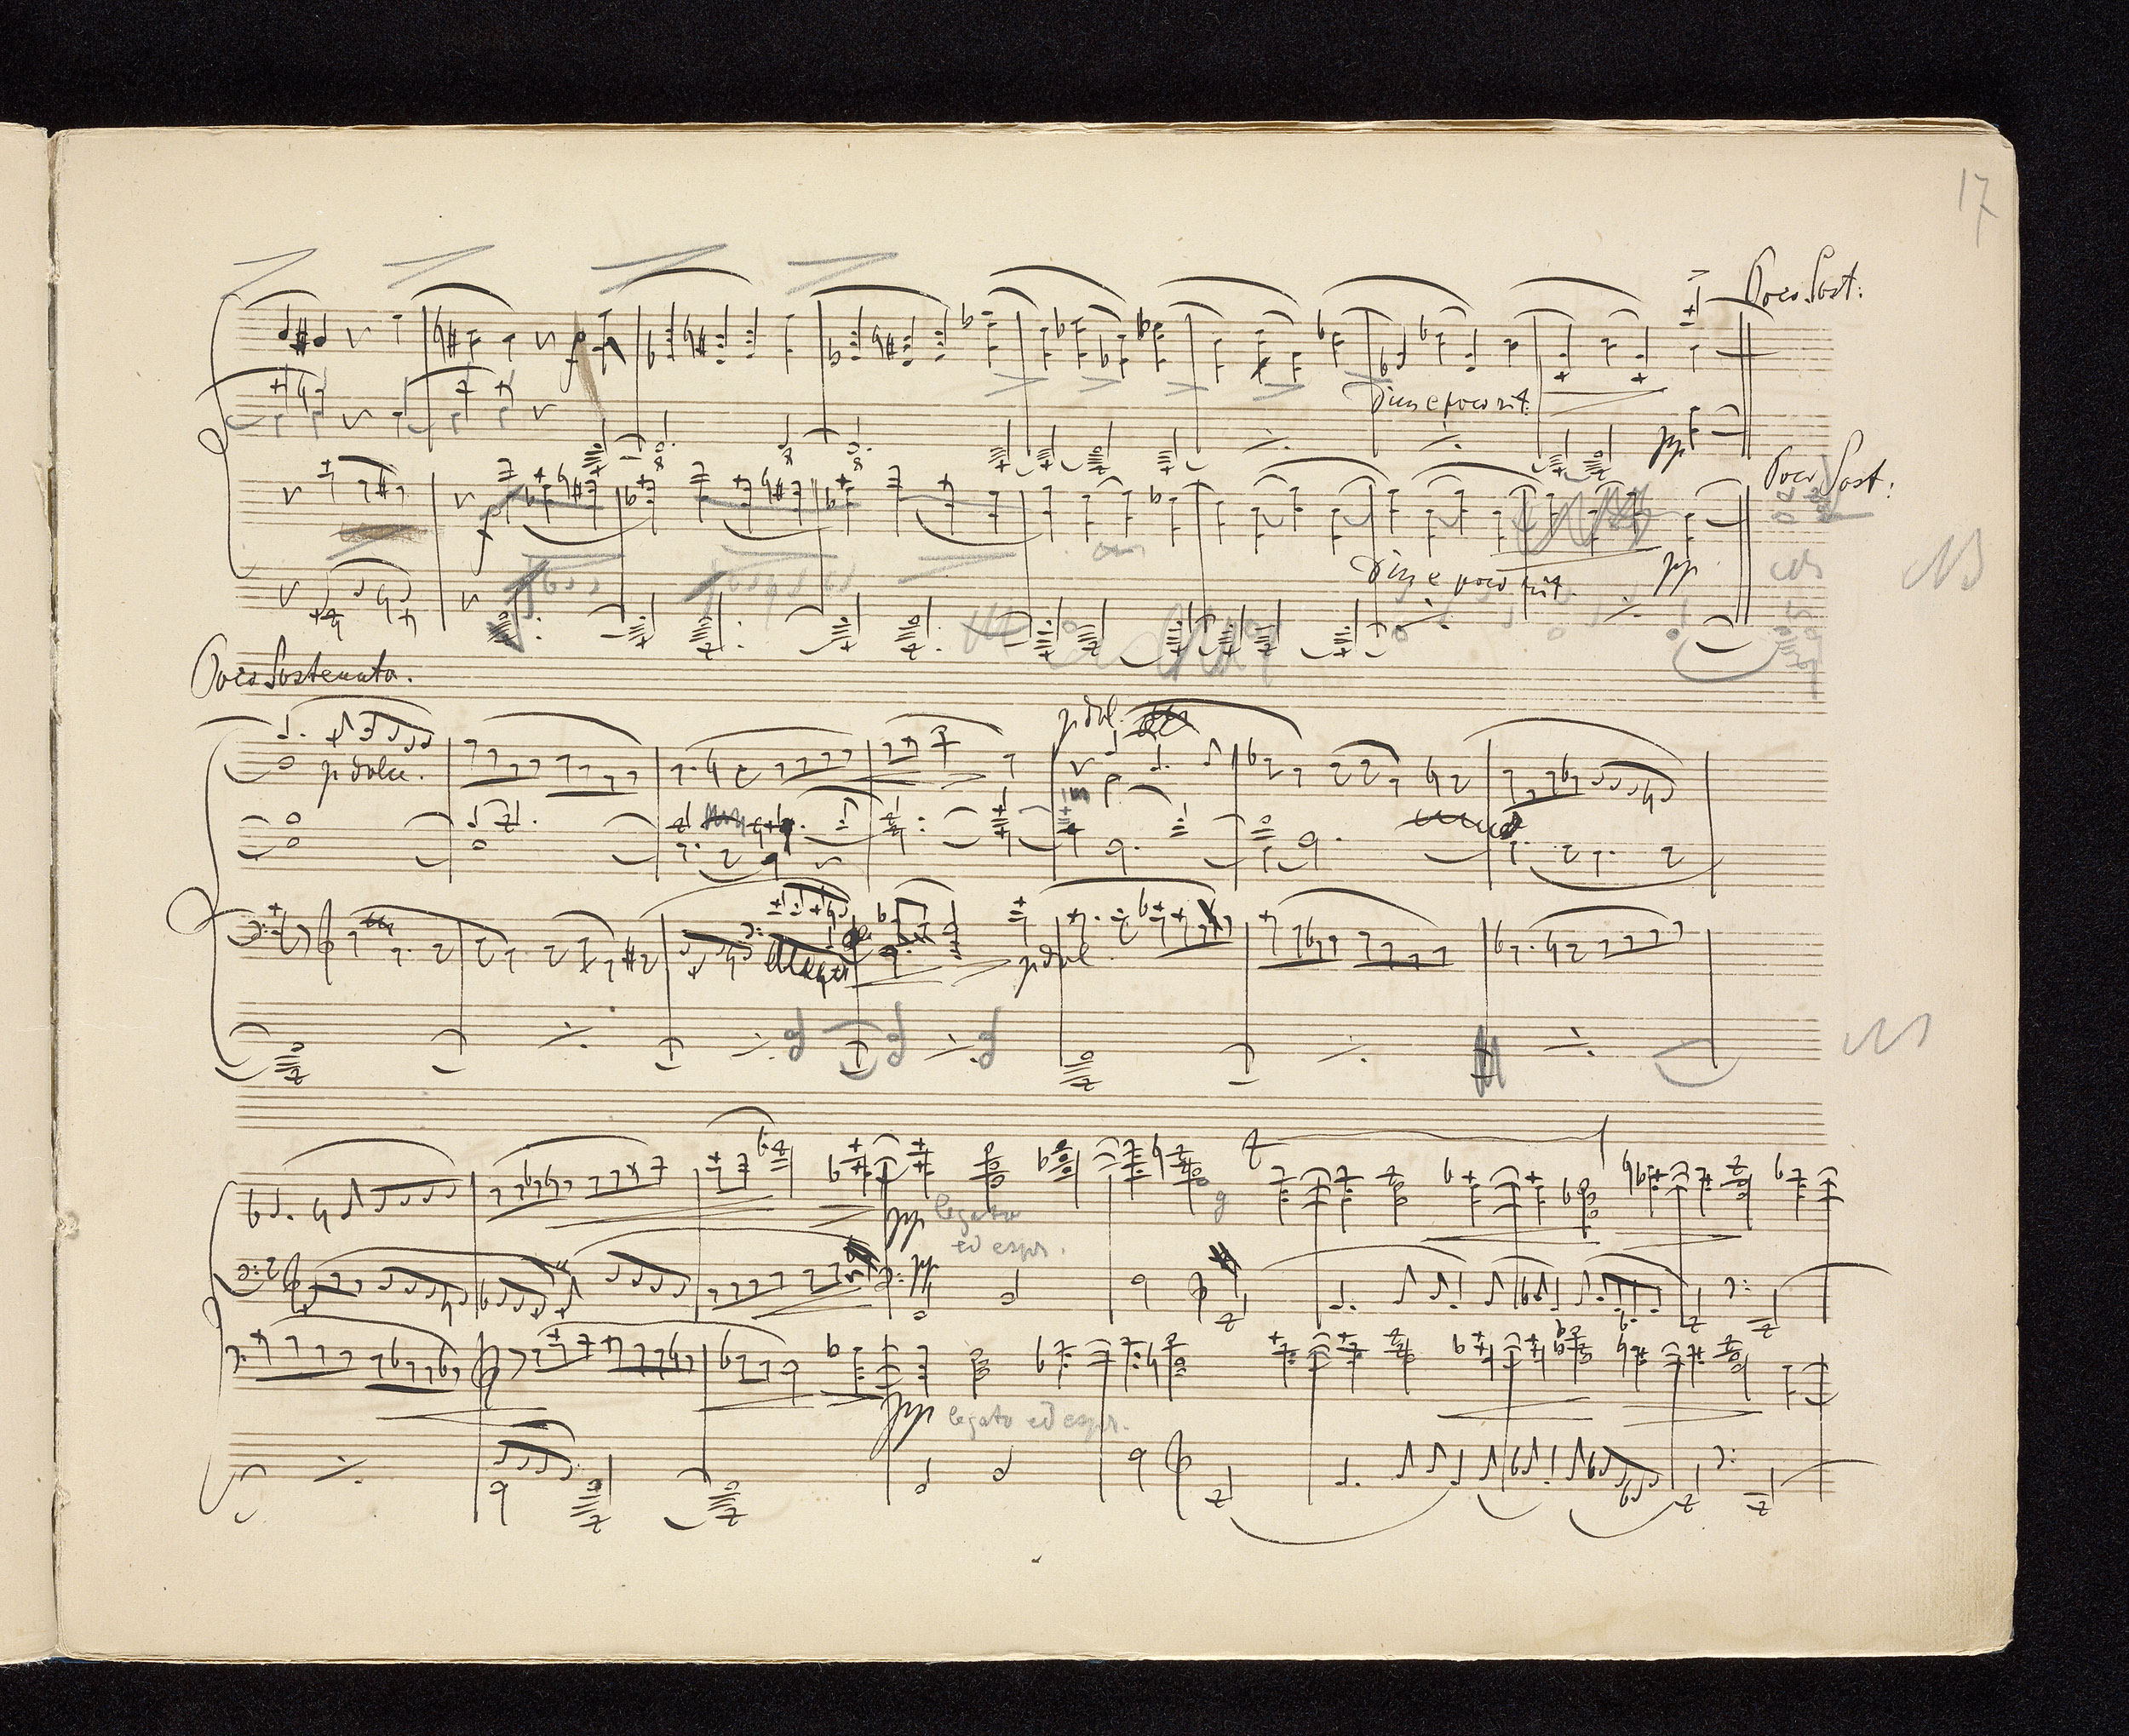 17
Poco Sost:
Dim e poco rit.
pp
Poco Sost:
f
Dim e poco rit.
pp
NB
Poco Sostenuto.
p dol.
p dolce.
p dol.
NB
pp legato
ed espr.
pp
pp legato ed espr.